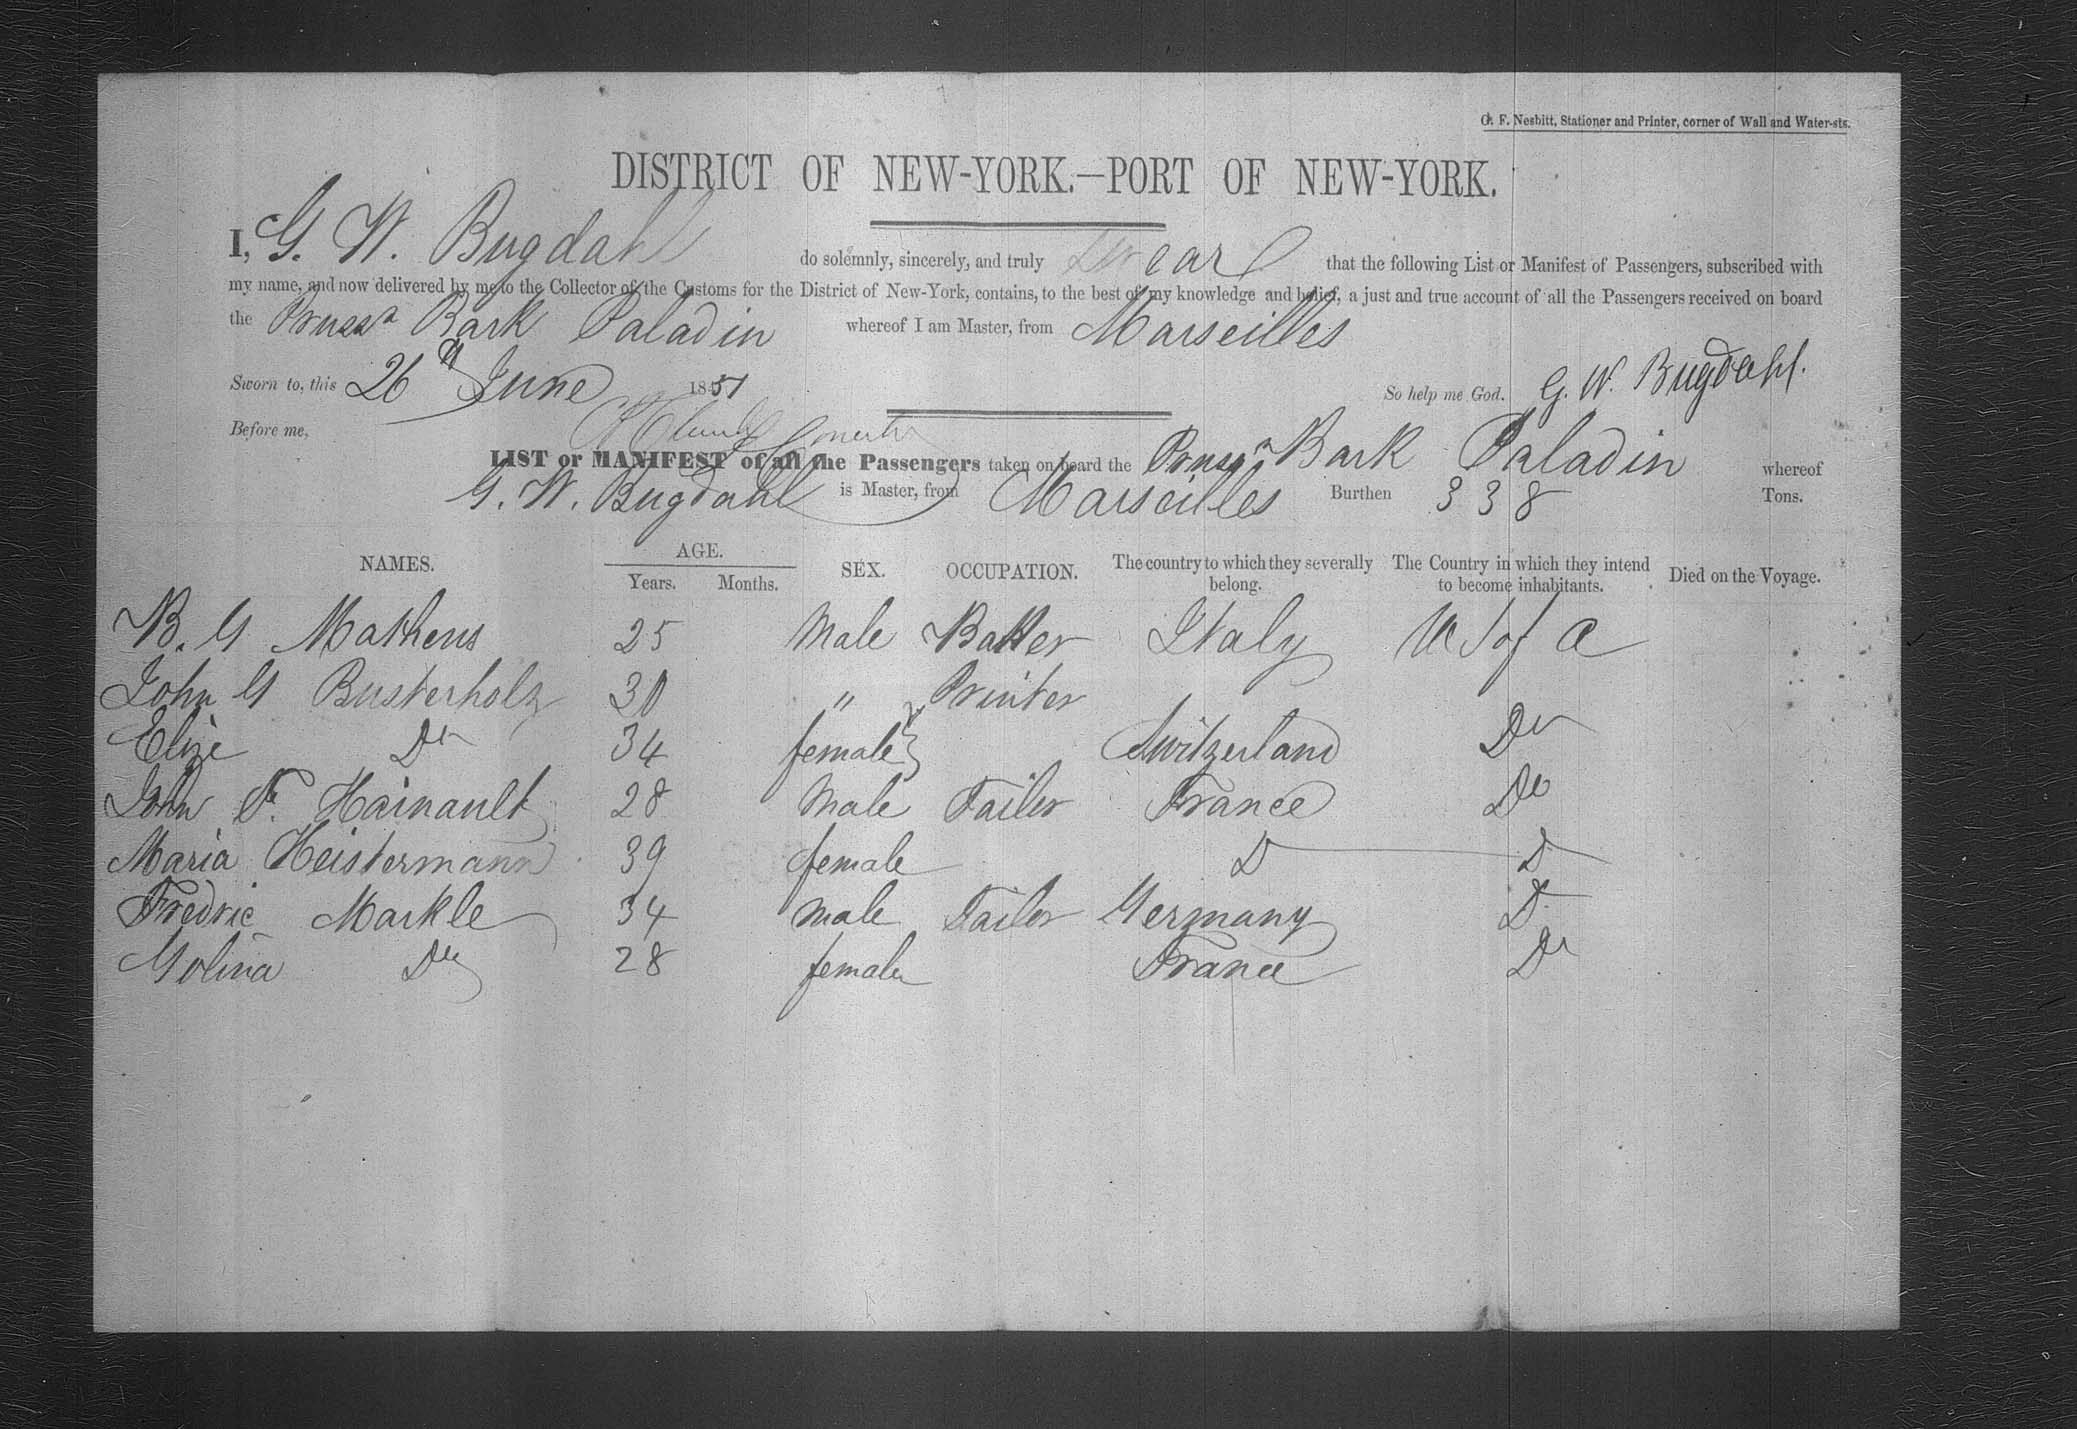 G. F. Nesbitt, Stationer and Printer, corner of Wall and Water-sts.
DISTRICT OF NEW-YORK.—PORT OF NEW-YORK.
I, G. W. Bugdahl do solemnly, sincerely, and truly swear that the following List or Manifest of Passengers, subscribed with
my name, and now delivered by me to the Collector of the Customs for the District of New-York, contains, to the best of my knowledge and belief, a just and true account of all the Passengers received on board
the Prussn Bark Paladin whereof I am Master, from Marseilles
Sworn to, this 26th June 1851 So help me God. G. W. Bugdahl.
Before me,
LIST or MANIFEST of all the Passengers taken on board the Prussn Bark Paladin whereof
G. W. Bugdahl is Master, from Marseilles Burthen 338 Tons.
NAMES. AGE. SEX. OCCUPATION. The country to which they severally The Country in which they intend Died on the Voyage.
Years. Months. belong. to become inhabitants.
B. G Mathens 25 Male Baker Italy U S of A
John G Busterholz 30 " Printer
Elize Do 34 female } Switzerland Do
John F. Hainault 28 Male Tailor France Do
Maria Heistermann 39 female D D
Fredric Markle 34 male Tailor Germany D
Golina Do 28 female France Do